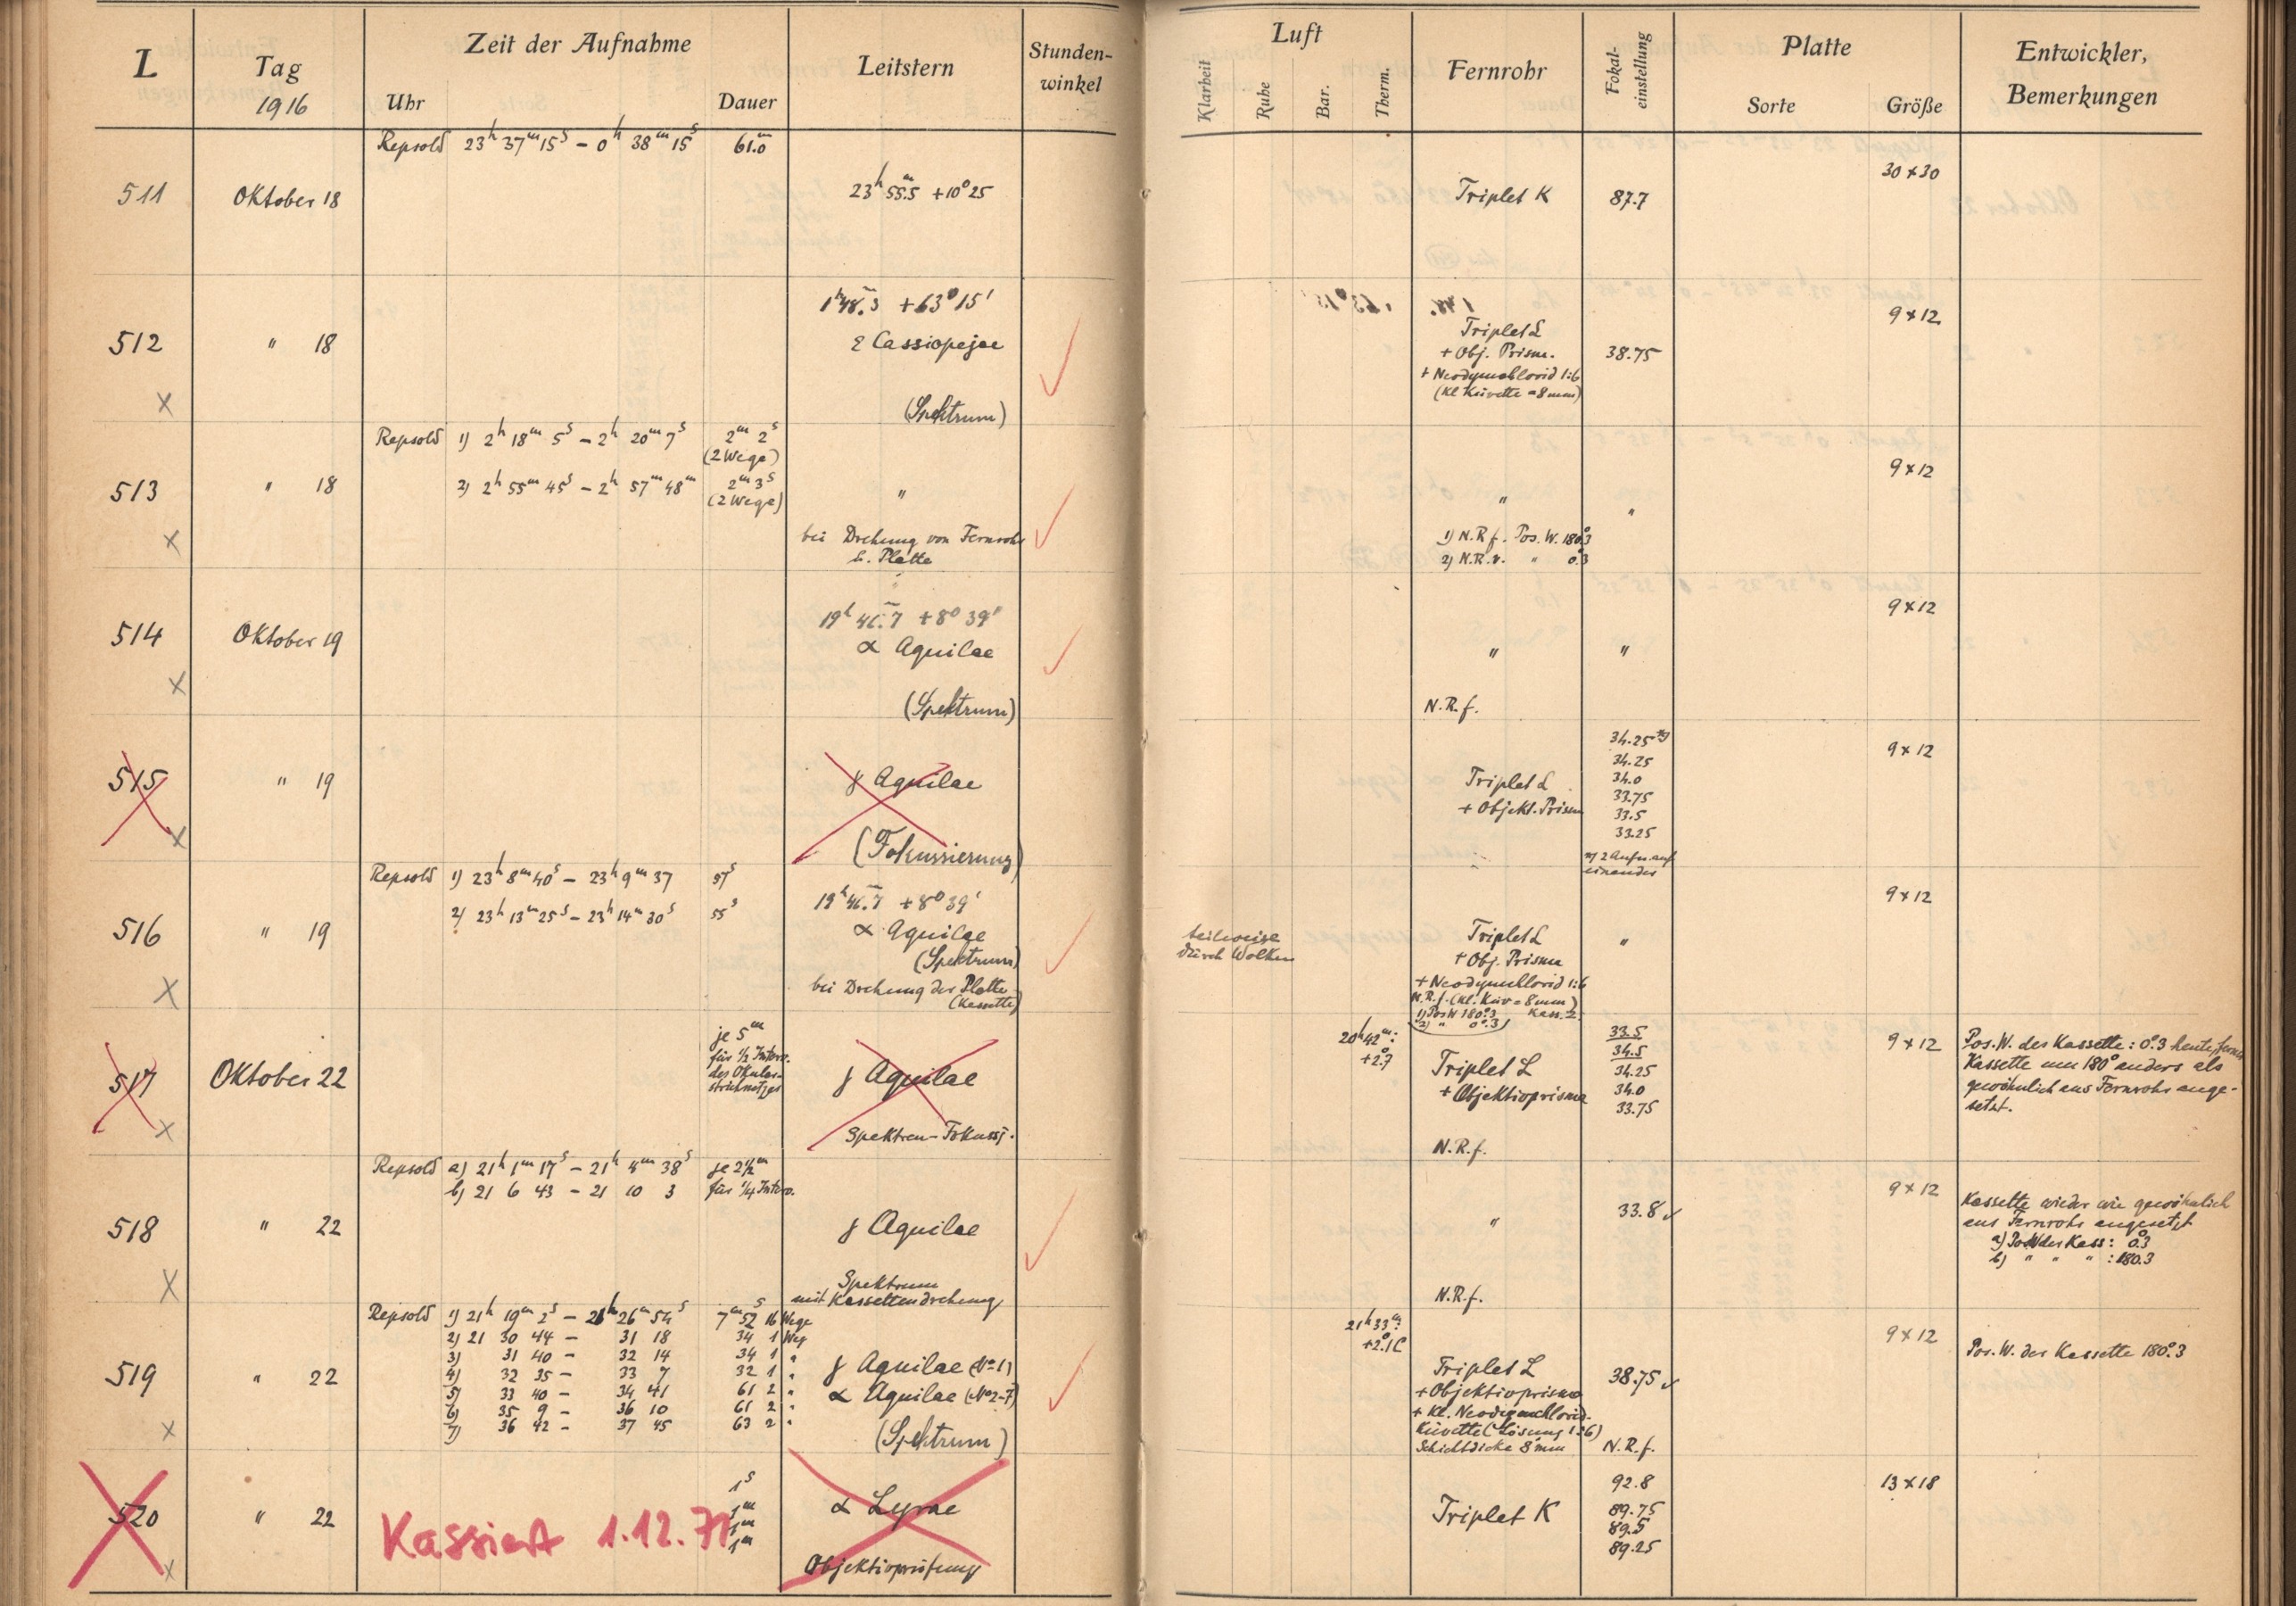 L
Tag
1916
Zeit der Aufnahme
Uhr
Dauer
Leitstern
Stunden-
winkel
Luft
Klarheit
Ruhe
Bar.
Therm.
Fernrohr
Fokal-
einstellung
Platte
Sorte
Größe
Entwickler,
Bemerkungen
511
Oktober 18
Repsold 23h 37m 15s – 0h 38m 15s
61.0m
23h 55.5m +10°25
Triplet K
87.7
30 × 30
512
" 18
×
1h 48.3m +63°15'
ε Cassiopejae
(Spektrum)
Triplet L
+ Obj. Prism.
+ Neodymchlorid 1:6
(Kl Küvette = 8 mm)
38.75
9 × 12
513
" 18
×
Repsold 1) 2h 18m 5s – 2h 20m 7s
2m 2s
(2 Wege)
2) 2h 55m 45s – 2h 57m 48m
2m 3s
(2 Wege)
"
bei Drehung von Fernrohr
u. Platte
"
1) N.R.f. Pos. W. 180.°3
2) N.R.v. " 0.°3
"
9 × 12
514
Oktober 19
×
19h 46.7m +8° 39'
α Aquilae
(Spektrum)
"
N.R.f.
"
9 × 12
515
" 19
×
γ Aquilae
(Fokussierung)
Triplet L
+ Objekt. Prism
34.25 *)
34.25
34.0
33.75
33.5
33.25
*) 2 Aufn. auf
einander
9 × 12
516
" 19
×
Repsold 1) 23h 8m 40s – 23h 9m 37
57s
2) 23h 13m 25s – 23h 14m 30s
55s
19h 46.7m +8° 39'
α Aquilae
(Spektrum)
bei Drehung der Platte
(Kassette)
teilweise
durch Wolken
Triplet L
+ Obj. Prisma
+ Neodymchlorid 1:6
N.R.f. (Kl. Küv = 8 mm)
1) Pos W 180.°3 Kass. 2
2) " 0.°3
"
9 × 12
517
Oktober 22
×
je 5m
für 1/2 Interv.
des Okular-
strichnetzes
γ Aquilae
Spektren-Fokuss.
20h 42m:
+2.°7
Triplet L
+ Objektivprisma
N.R.f.
33.5
34.5
34.25
34.0
33.75
9 × 12
Pos. W. der Kassette: 0.°3 heute, ferner
Kassette um 180° anders als
gewöhnlich ans Fernrohr ange-
setzt.
518
" 22
×
Repsold a) 21h 1m 17s – 21h 4m 38s
b) 21 6 43 – 21 10 3
je 2 1/2m
für 1/4 Interv.
γ Aquilae
Spektrum
mit Kassettendrehung
"
N.R.f.
33.8 ✓
9 × 12
Kassette wieder wie gewöhnlich
ans Fernrohr angesetzt
a) Pos W der Kass: 0.°3
b) " " " : 180.3
519
" 22
×
Repsold 1) 21h 19m 2s – 21h 26m 54s 7m 52s 16 Wege
2) 21 30 44 – 31 18 34 1 Weg
3) 31 40 – 32 14 34 1 "
4) 32 35 – 33 7 32 1 "
5) 33 40 – 34 41 61 2 "
6) 35 9 – 36 10 61 2 "
7) 36 42 – 37 45 63 2 "
γ Aquilae (No 1)
α Aquilae (No 2–7)
(Spektrum)
21h 33m:
+2.°1 C
Triplet L
+ Objektivprisma
+ Kl. Neodymchlorid-
Küvette (Lösung 1:6)
Schichtdicke 8 mm
38.75 ✓
N.R.f.
9 × 12
Pos. W. der Kassette 180.°3
520
" 22
×
Kassiert 1.12.71
1s
1m
1m
1m
α Lyrae
Objektivprüfung
Triplet K
92.8
89.75
89.5
89.25
13 × 18